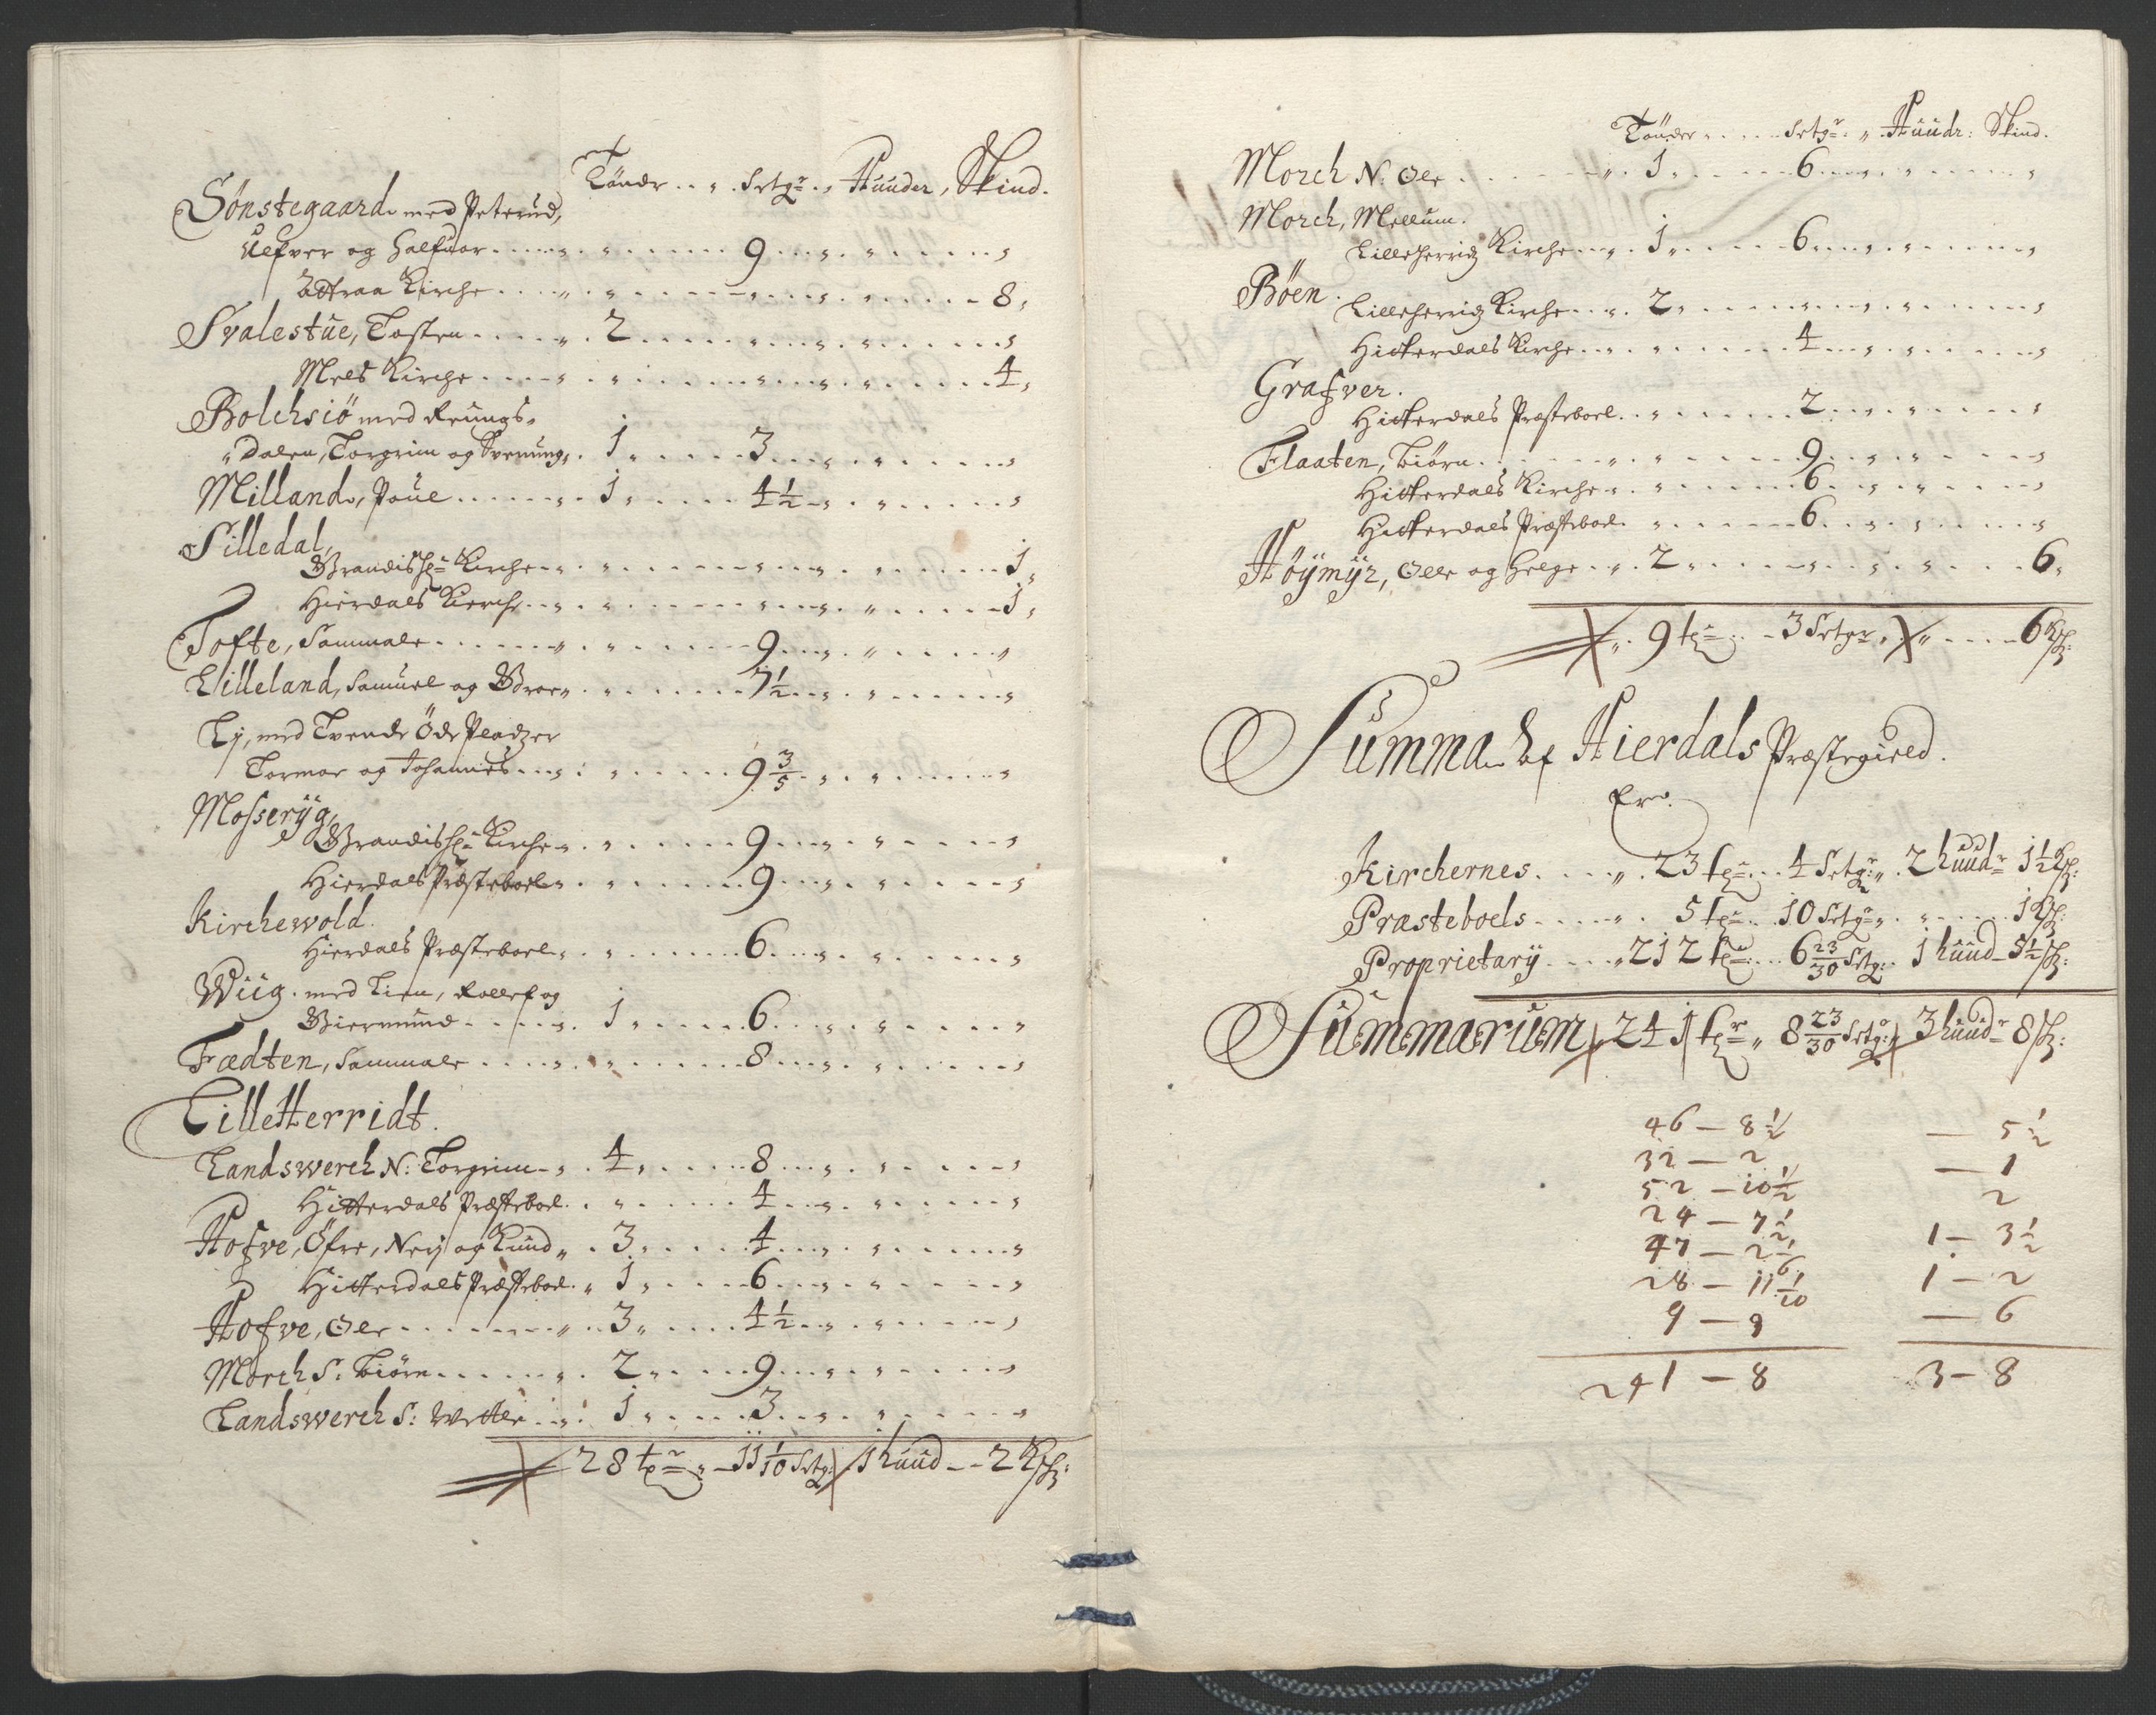 Tönde . . „ . Setgr . „ Huuder, Skind.
Sönstegaard med Peterud,
Ulfver og Halfuor . . . . „ . . . . . . . 9 . . . „ . „ . . . . . „
Attraa Kirche . . . . „ . „ . . . . . . . . . „ . . . . . . 8 „
Svalestüe, Tosten . . . . „ . 2 . . . . . „ . . . „ . „ . . . . . „
Mels Kirche . . . . „ . „ . . . . . . „ . . . „ . . . . . . 4 „
Bolchsiö med Reungs-
„dalen, Torgrim og Svenung „ . 1 „ . . . . . 3 . . . „ . „ . . . . . „
Milland, Poüe . . . . . . „ . 1 „ . . . . . 4 1/2 „ . „ . . . . . „
Silledal,
Brandissp: Kirche . . „ . „ . . . . . . „ . . . „ . . . . . . 1 „
Hierdals Kirche . . „ . „ . . . . . . „ . . . „ . „ . . . . . 1 „
Tofte, Sammale . . . . . . „ . „ . . . . . 9 . . . „ . „ . . . . . „
Lilleland, Samuel og Broer „ . „ . . . . . 7 1/2 . . „ . „ . . . . . „
Lj, med Tvende Öde Pladzer
Tormor og Johannes . . . „ . „ . . . . . 9 3/5 . „ . „ . . . . . „
Mosserÿg,
Brandissp: Kirche „ . „ . . . . . 9 . . . „ . „ . . . . . „
Hierdals Præsteboel „ . „ . . . . . 9 . . . „ . „ . . . . . „
Kirchewold.
Hierdals Præsteboel „ . „ . . . . . 6 . . . „ . „ . . . . . „
Wiig. med Lien, Rollef og
Biermund . . . . . „ . 1 „ . . . . . 6 . . . „ . „ . . . . . „
Fædten, Sammale . . . . „ . „ . . . . . 8 . . . „ . „ . . . . . „
LilleHerridt.
Landswerch N: Torgrim . „ . 4 „ . . . . . 8 . . . „ . „ . . . . . „
Hitterdals Præsteboel . „ . . . . . 4 . . . „ . „ . . . . . „
Hofve, Öfre, Nerj og Knud „ . 3 „ . . . . . 4 . . . „ . „ . . . . . „
Hitterdals Præsteboel . „ 1 „ . . . . . 6 . . . „ . „ . . . . . „
Hofve, Ole . . . . . . . „ . 3 „ . . . . . 4 1/2 . . „ . „ . . . . . „
Morch S: Biörn . . . . . . „ . 2 „ . . . . . 9 . . . „ . „ . . . . . „
Landswerch S: Wetle . . „ . 1 „ . . . . . 3 . . . „ . „ . . . . . „
28 tr „ - 11 1/10 Setg: 1 huud - - 2 Sk:
Tönder . „ . . . . Setgr . „ Huudr: Skind.
Morch N: Ole . . . . . . . „ . 1 „ . . . . . 6 . . . „ . „ . . . . . „
Morch, Mellum.
Lilleherridz Kirche . . „ . 1 „ . . . . . 6 . . . „ . „ . . . . . „
Böen.
Lilleherridz Kirche . . „ . 2 „ . . . . . „ . . . „ . „ . . . . . „
Hitterdals Kirche . „ . „ . . . . . 4 . . . „ . „ . . . . . „
Grafver.
Hitterdals Præsteboel . „ . . . . . 2 . . . „ . „ . . . . . „
Flaaten, Biörn . . . . . . „ . „ . . . . . 9 . . . „ . „ . . . . . „
Hitterdals Kirche „ . „ . . . . . 6 . . . „ . „ . . . . . „
Hitterdals Præsteboel . „ . . . . . 6 . . . „ . „ . . . . . „
Höÿmÿr, Olle og Helge . . „ . 2 „ . . . . . „ . . . „ . „ . . . . 6 „
„ . 9 tr . - 3 Setgr „ . „ . . . . 6 Sk:
Summa Af Hierdals Præstegield.
Er.
Kirchernes . . . . „ . 23 tr . . . 4 Setgr „ . 2 huudr 1 1/2 Sk:
Præsteboels . . . . „ . 5 tr . . 10 Setgr „ . „ . . . . . 1 Sk:
Proprietarÿ . . . . „ 212 tr . . . 6 23/30 Setg: . 1 huud - 5 1/2 Sk:
Summarum 241 tr „ 8 23/30 Setg: 3 huudr 8 Sk:
46 — 8 1/2 — 5 1/2
32 — 2 — 1
52 — 10 1/2 2
24 — 7 1/2
47 — 2 1/6 1 — 3 1/2
28 — 11 1/10 1 — 2
9 — 9 — 6
241 — 8 3 — 8